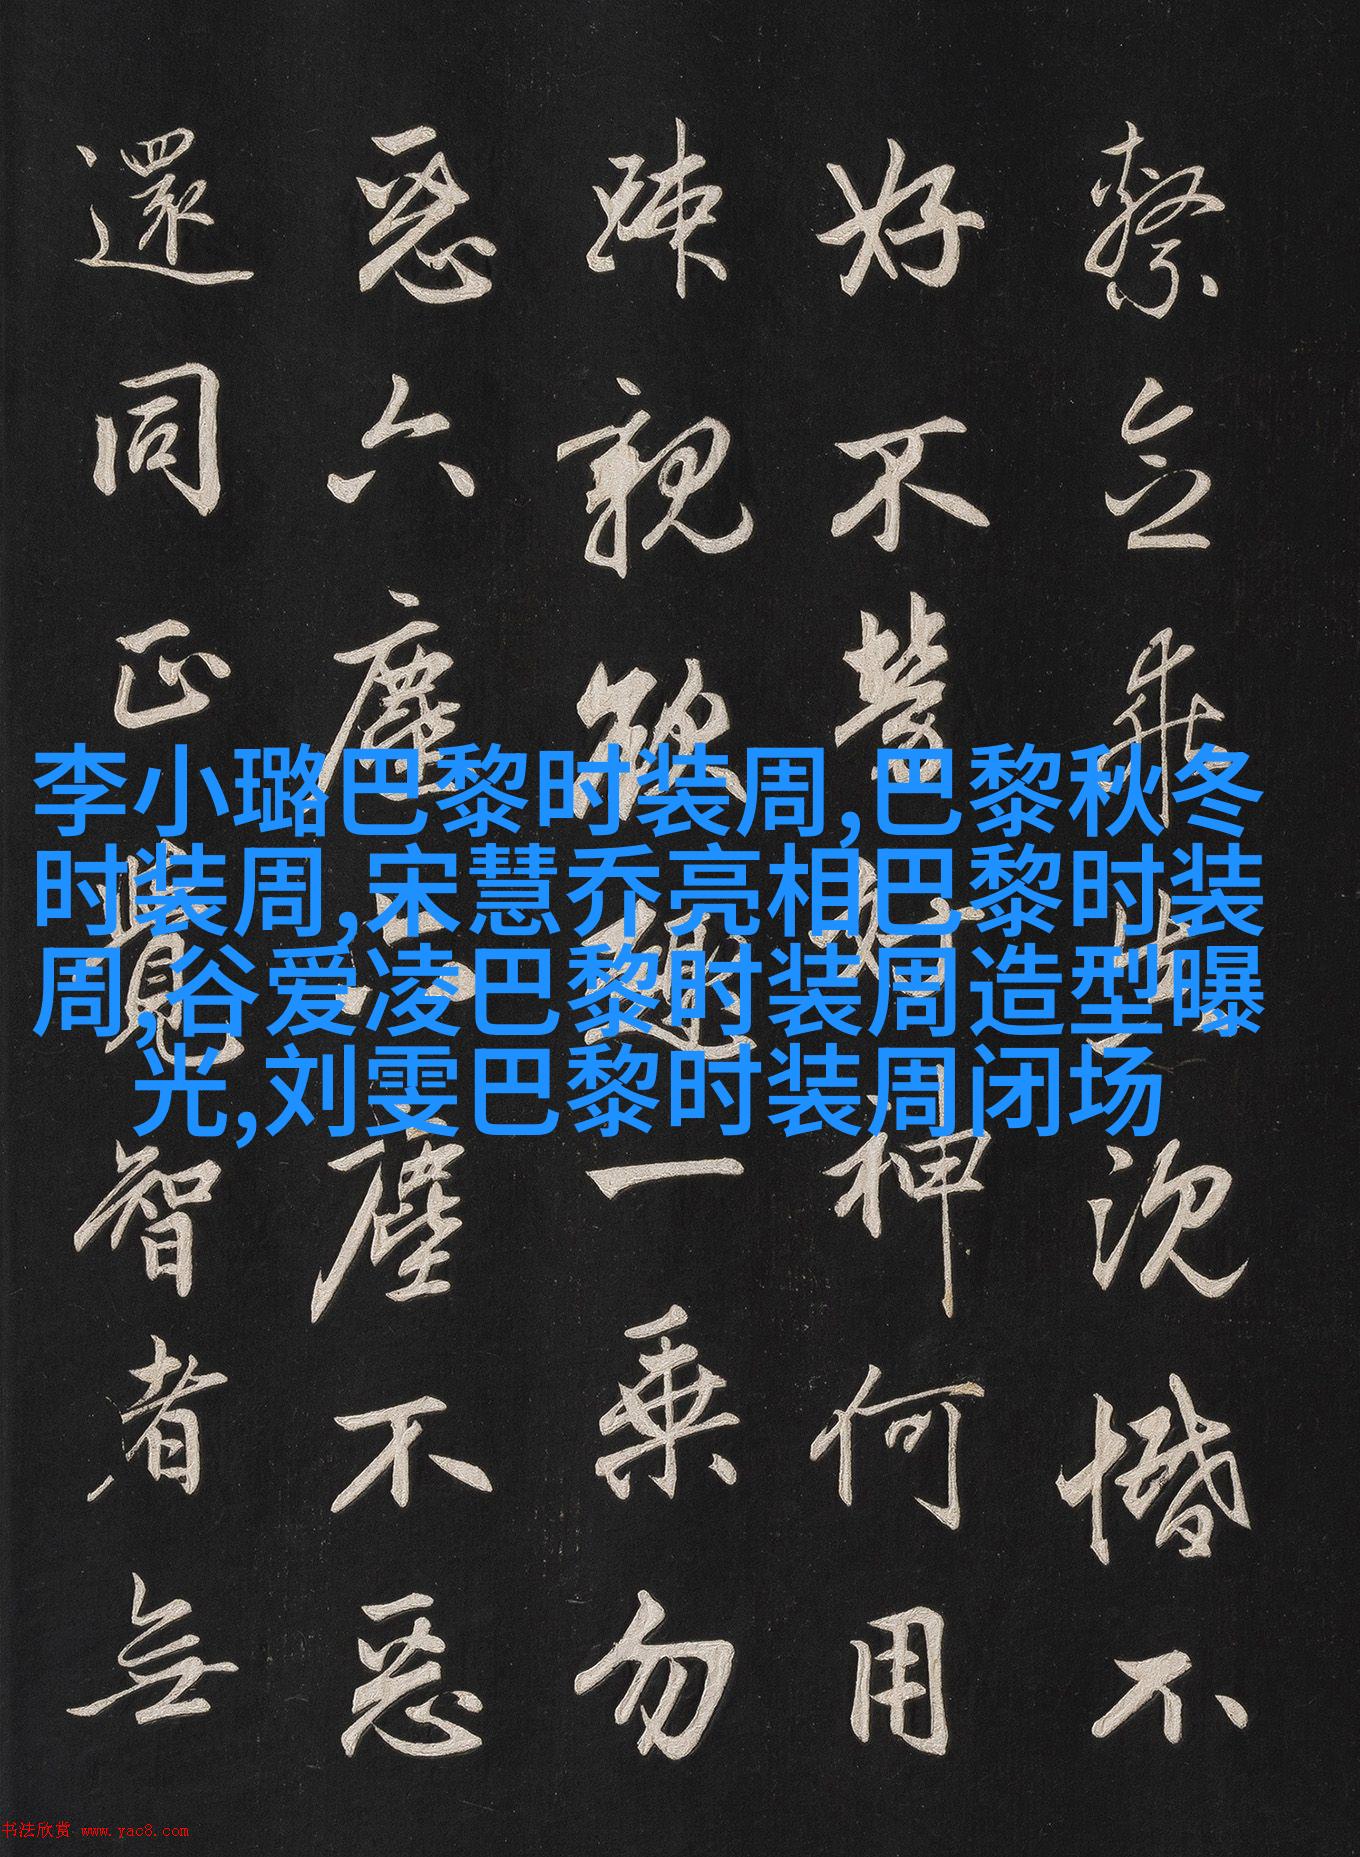 繫念乖真沉惛不
好不勞好神何用
疎親欲趣一乘勿
惡六塵六塵不惡
還同正覺智者無
李小璐巴黎时装周,巴黎秋冬
时装周,宋慧乔亮相巴黎时装
周,谷爱凌巴黎时装周造型曝
光,刘雯巴黎时装周闭场
书法欣赏 www.yac8.com